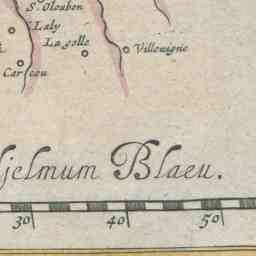 S. Oloubon
Laly
La solle
Villevigne
Car cou
jelmum Blaeu.
30 40 50